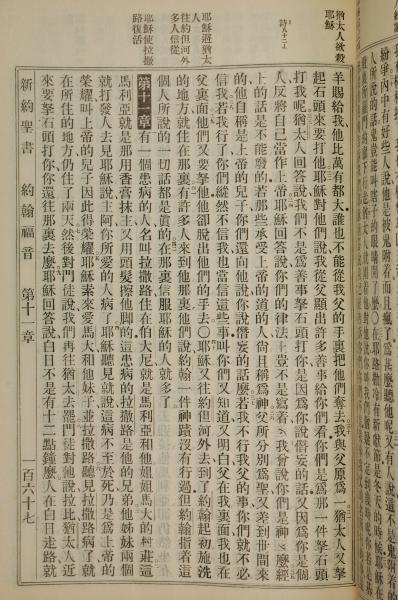 紛爭內中有好些人說他是被鬼附着而且瘋了
猶太人欲殺耶穌
羊賜給我他比萬有都大誰也不能從我父的手裏把他們奪去我與父原爲一猶太人又拏
起石頭來要打他耶穌對他們說我從父顯出許多善事給你們看你們是爲那一件拏石頭
打我呢猶太人回答說我們不是爲善事拏石頭打你是因爲你說僭妄的話又因爲你是個
人反將自己當作上帝耶穌回答說你們的律法上豈不是寫着我曾說你們是神麼經
上的話是不能廢的若那些承受上帝的道的人尙且稱爲神父所分別爲聖又差到世間來
的他自稱是上帝的兒子你們還向他說你說僭妄的話麼若我不行我父的事你們就不必
信我若我行了你們縱然不信我也當信這些事叫你們又知道又明白父在我裏面我也在
耶穌避猶太人往約但河外多人信從
父裏面他們又要拏他他卻脫出他們的手去〇耶穌又往約但河外去到了約翰起初施洗
的地方就住在那裏有許多人來到他那裏他們說約翰一件神蹟沒有行過但約翰指着這
個人所說的一切話都是真的在那裏信服耶穌的人就多了
耶穌使拉撒路復活
第十一章 有一個患病的人名叫拉撒路住在伯大尼就是馬利亞和他姐姐馬大的村莊這
馬利亞就是那用香膏抹主又用頭髮擦他脚的這患病的拉撒路是他的兄弟他姊妹兩個
就打發人去見耶穌說主阿你所愛的人病了耶穌聽見就說這病不至於死乃是爲上帝的
榮耀叫上帝的兒子因此得榮耀耶穌素來愛馬大和他妹子並拉撒路聽見拉撒路病了就
在所住的地方仍住了兩天然後對門徒說我們再往猶太去罷門徒對他說拉比猶太人近
來要拏石頭打你你還往那裏去麼耶穌回答說白日不是有十二點鐘麼人在白日走路就
新約聖書 約翰福音 第十一章 一百六十七